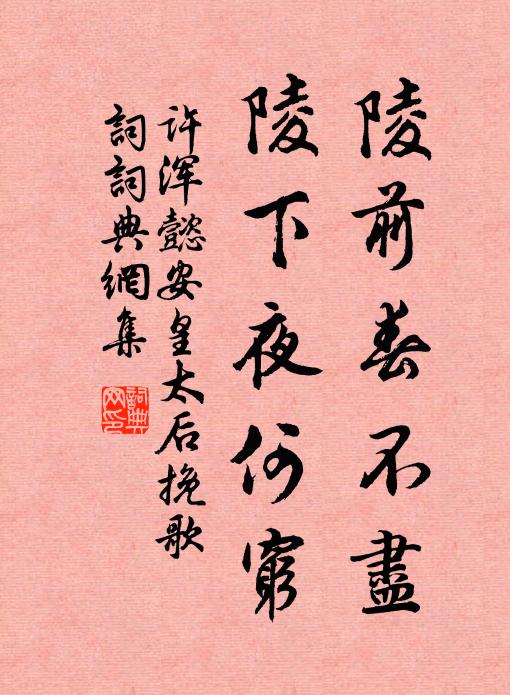 陵前春不盡
陵下夜何窮
许浑懿安皇太后挽歌
詞詞典網集
詞典
网印